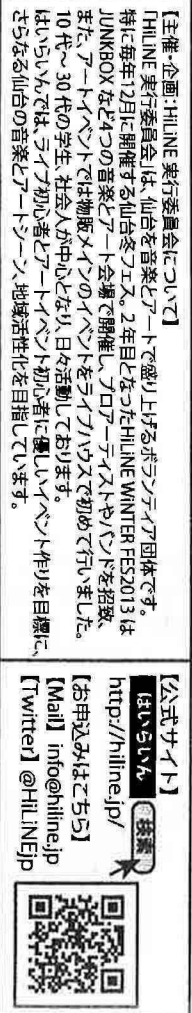 【主催・企画:HiLiNE 実行委員会について】
「HiLiNE 実行委員会」は、仙台を音楽とアートで盛り上げるボランティア団体です。
特に毎年12月に開催する仙台冬フェス。2年目となったHiLiNE WiNTER FES2013 は
JUNKBOX など4つの音楽とアート会場で開催し、プロアーティストやバンドを招致、
また、アートイベントでは物販メインのイベントをライブハウスで初めて行いました。
10代～30代の学生、社会人が中心となり、日々活動しております。
はいらいんでは、ライブ初心者とアートイベント初心者に優しいイベント作りを目標に、
さらなる仙台の音楽とアートシーン、地域活性化を目指しています。
【公式サイト】
はいらいん 検索
http://hiline.jp/
【お申込みはこちら】
【Mail】info@hiline.jp
【Twitter】@HiLiNEjp